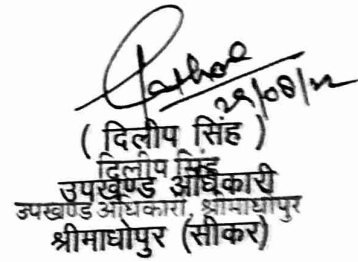 29/08/22
( दिलीप सिंह )
दिलीप सिंह
उपखण्ड अधिकारी
उपखण्ड अधिकारी, श्रीमाधोपुर
श्रीमाधोपुर (सीकर)